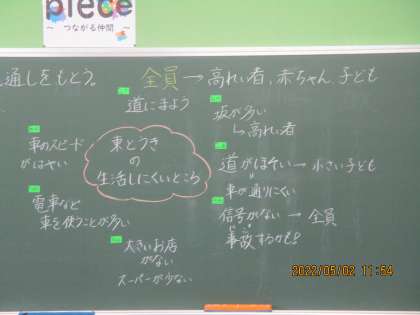 piece
～ つながる仲間 ～
通しをもとう。
全員→高れい者、赤ちゃん、子ども
道にまよう
坂が多い
↳高れい者
車のスピード
がはやい
東とつき
の
生活しにくいところ
道がほそい→小さい子ども
車が通りにくい
電車など
車を使うことが多い
信号がない→全員
事故するかも!
大きいお店
がない
スーパーが少ない
2022/05/02 11:54